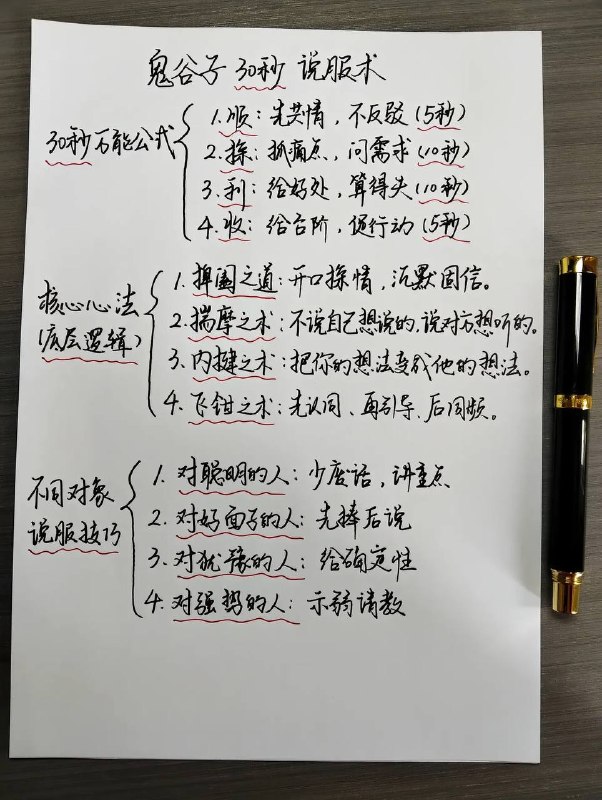 鬼谷子30秒说服术
30秒万能公式
1.顺：先共情，不反驳（5秒）
2.探：抓痛点，问需求（10秒）
3.利：给好处，算得失（10秒）
4.收：给台阶，促行动（5秒）
核心心法
（底层逻辑）
1.捭阖之道：开口探情，沉默固信。
2.揣摩之术：不说自己想说的，说对方想听的。
3.内揵之术：把你的想法变成他的想法。
4.飞钳之术：先认同、再引导、后同频。
不同对象
说服技巧
1.对聪明的人：少废话，讲重点
2.对好面子的人：先捧后说
3.对犹豫的人：给确定性
4.对强势的人：示弱请教